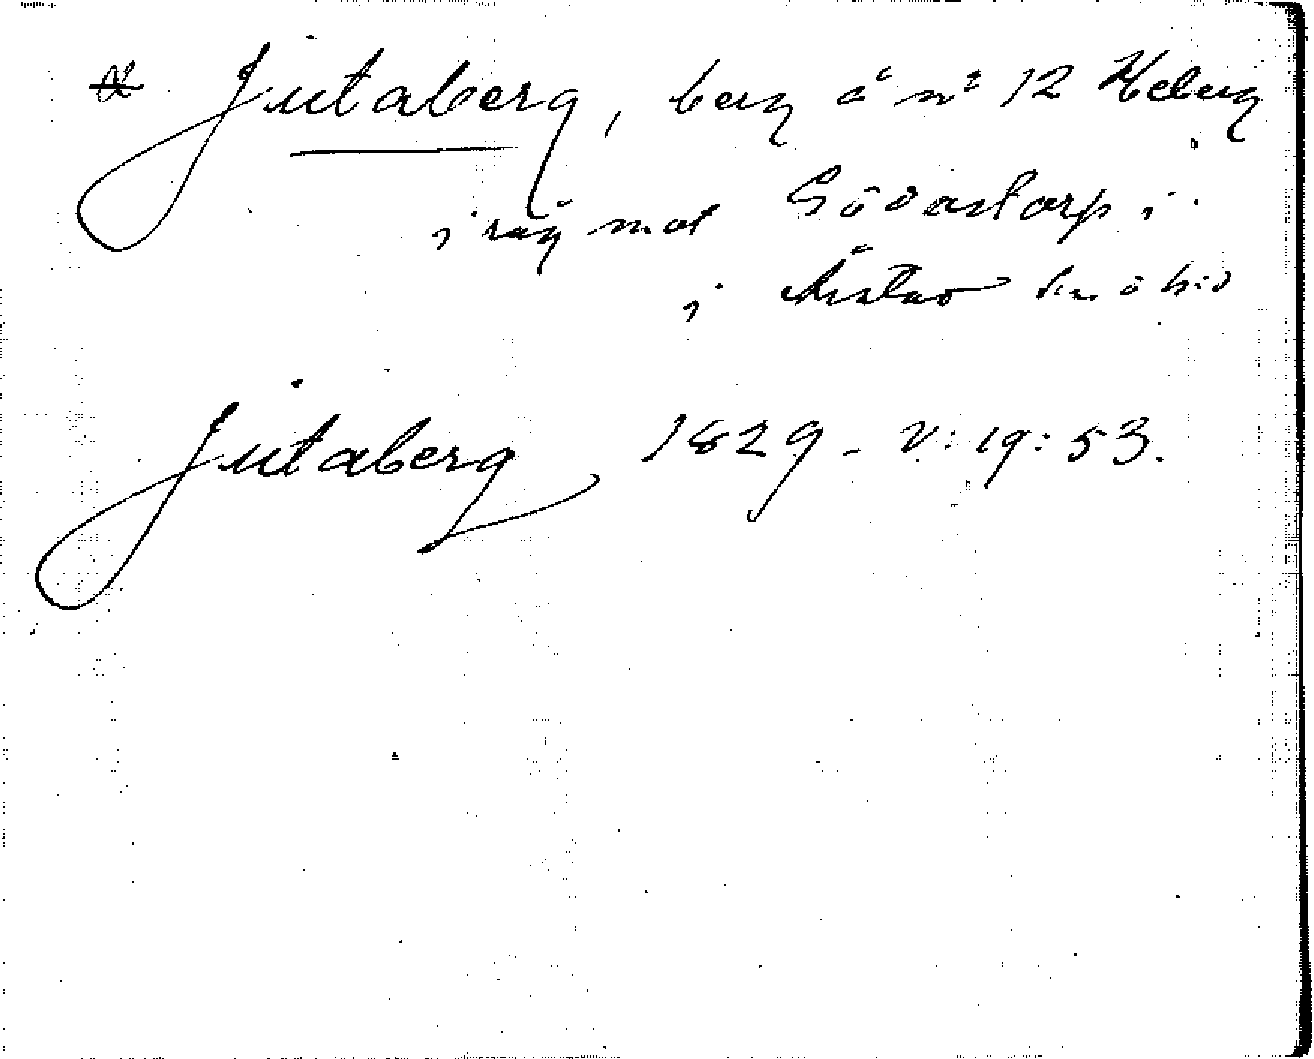 Jutaberg, berg å nº 12 Heberg
i råg mot Södastorp i
i Årstad sn ö hd
Jutaberg 1829 - V: 19: 53.